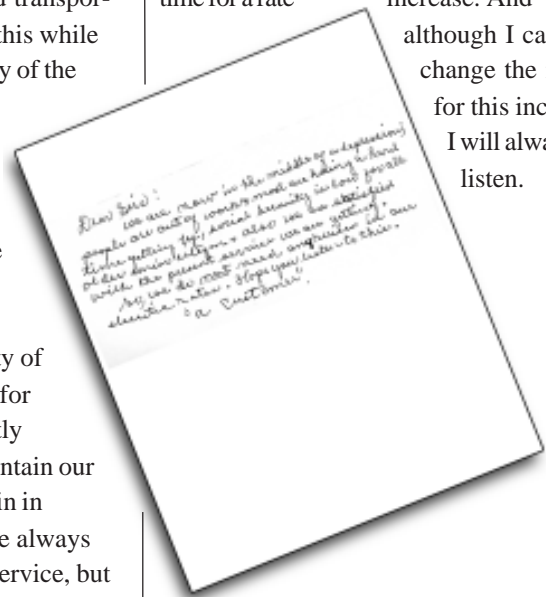 d transpor-
this while
y of the
e
ty of
for
tly
ntain our
in in
e always
ervice, but
time for a rate
increase. And
although I ca
change the
for this inc
I will alwa
listen.
Dear Sir:
We are now in the middle of a depression,
people are out of work & most are having a hard
time getting by, social security is low for all
older senior citizen. also we are satisfied
with the present service we are getting.
So we do not need in our
electric rates. Hope you listen to this.
"a customer".